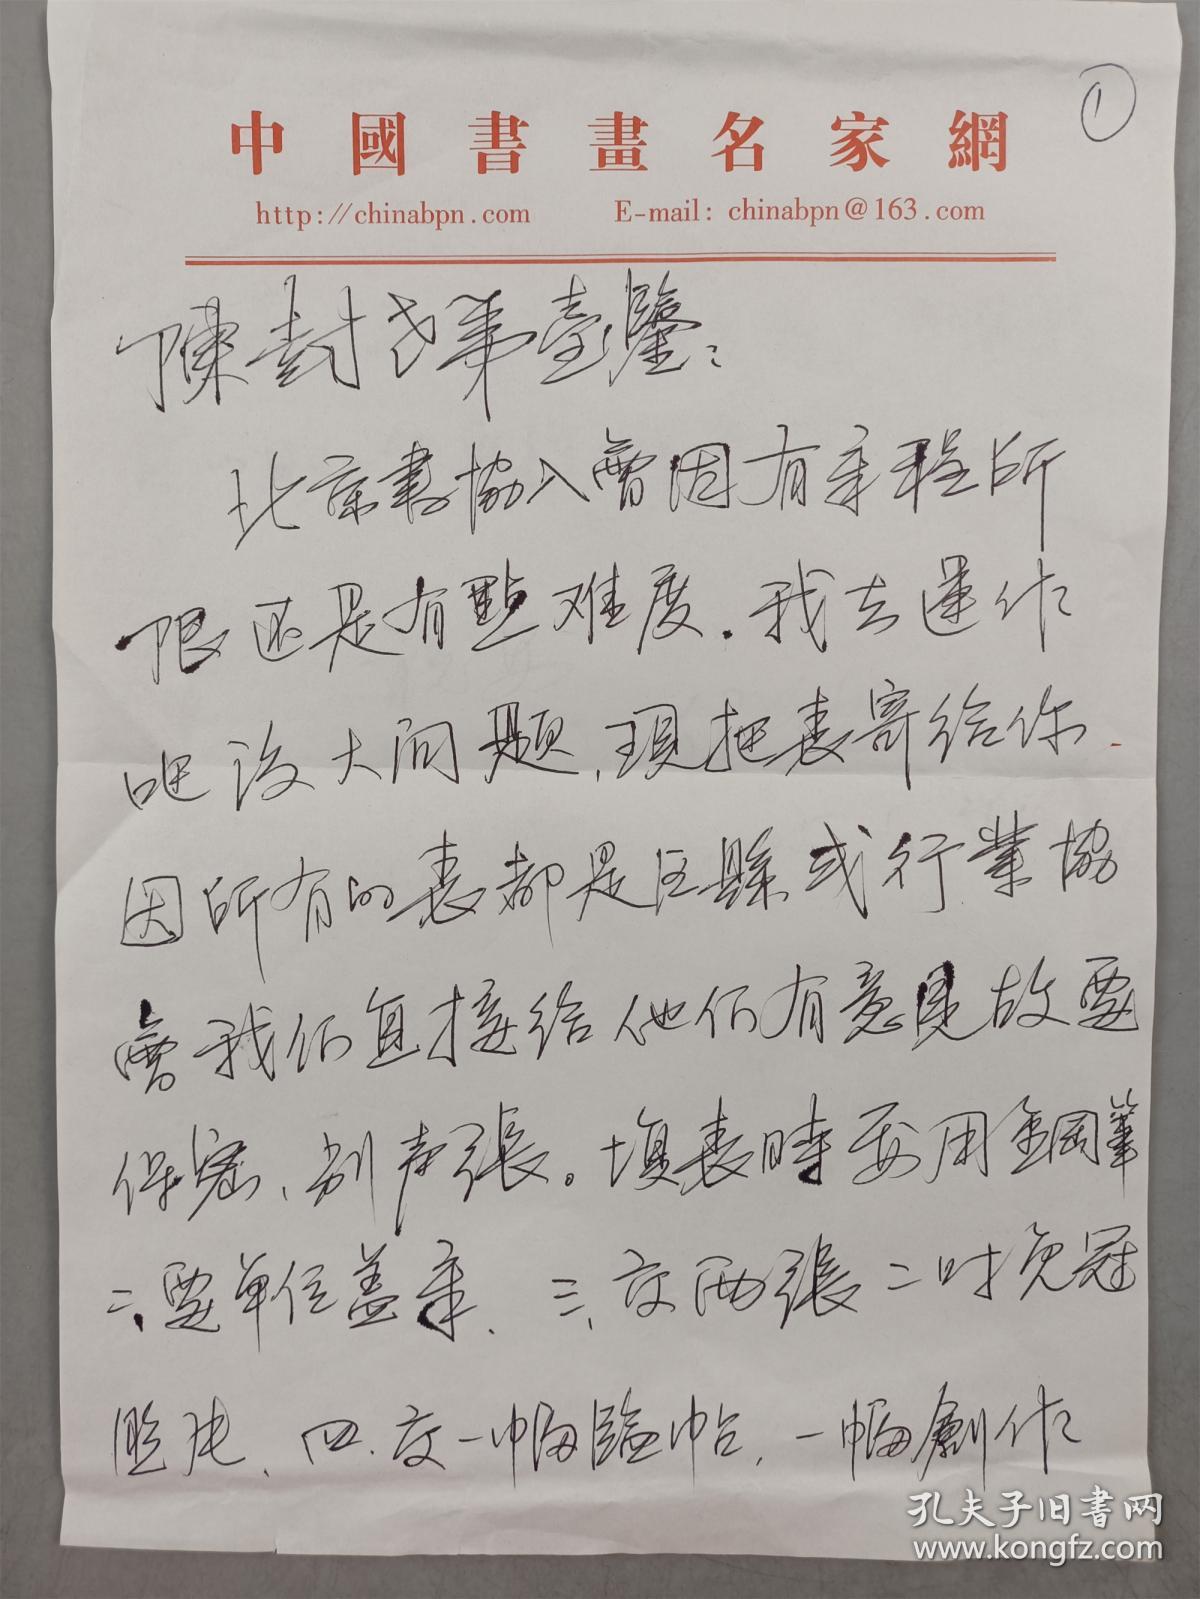 ①
中國書畫名家網
http://chinabpn.com E-mail: chinabpn@163.com
陳封弟臺鑒:
北京書協入會因有章程所
限还是有點难度.我去運作
吧没大问题,現把表寄给你.
因所有的表都是区縣或行業協
會我们直接给他们有意見故要
保密、别声張。填表時要用鋼筆
二、要单位盖章、三、交两張二吋免冠
照片、四、交一幅臨帖,一幅創作
孔夫子旧书网
www.kongfz.com